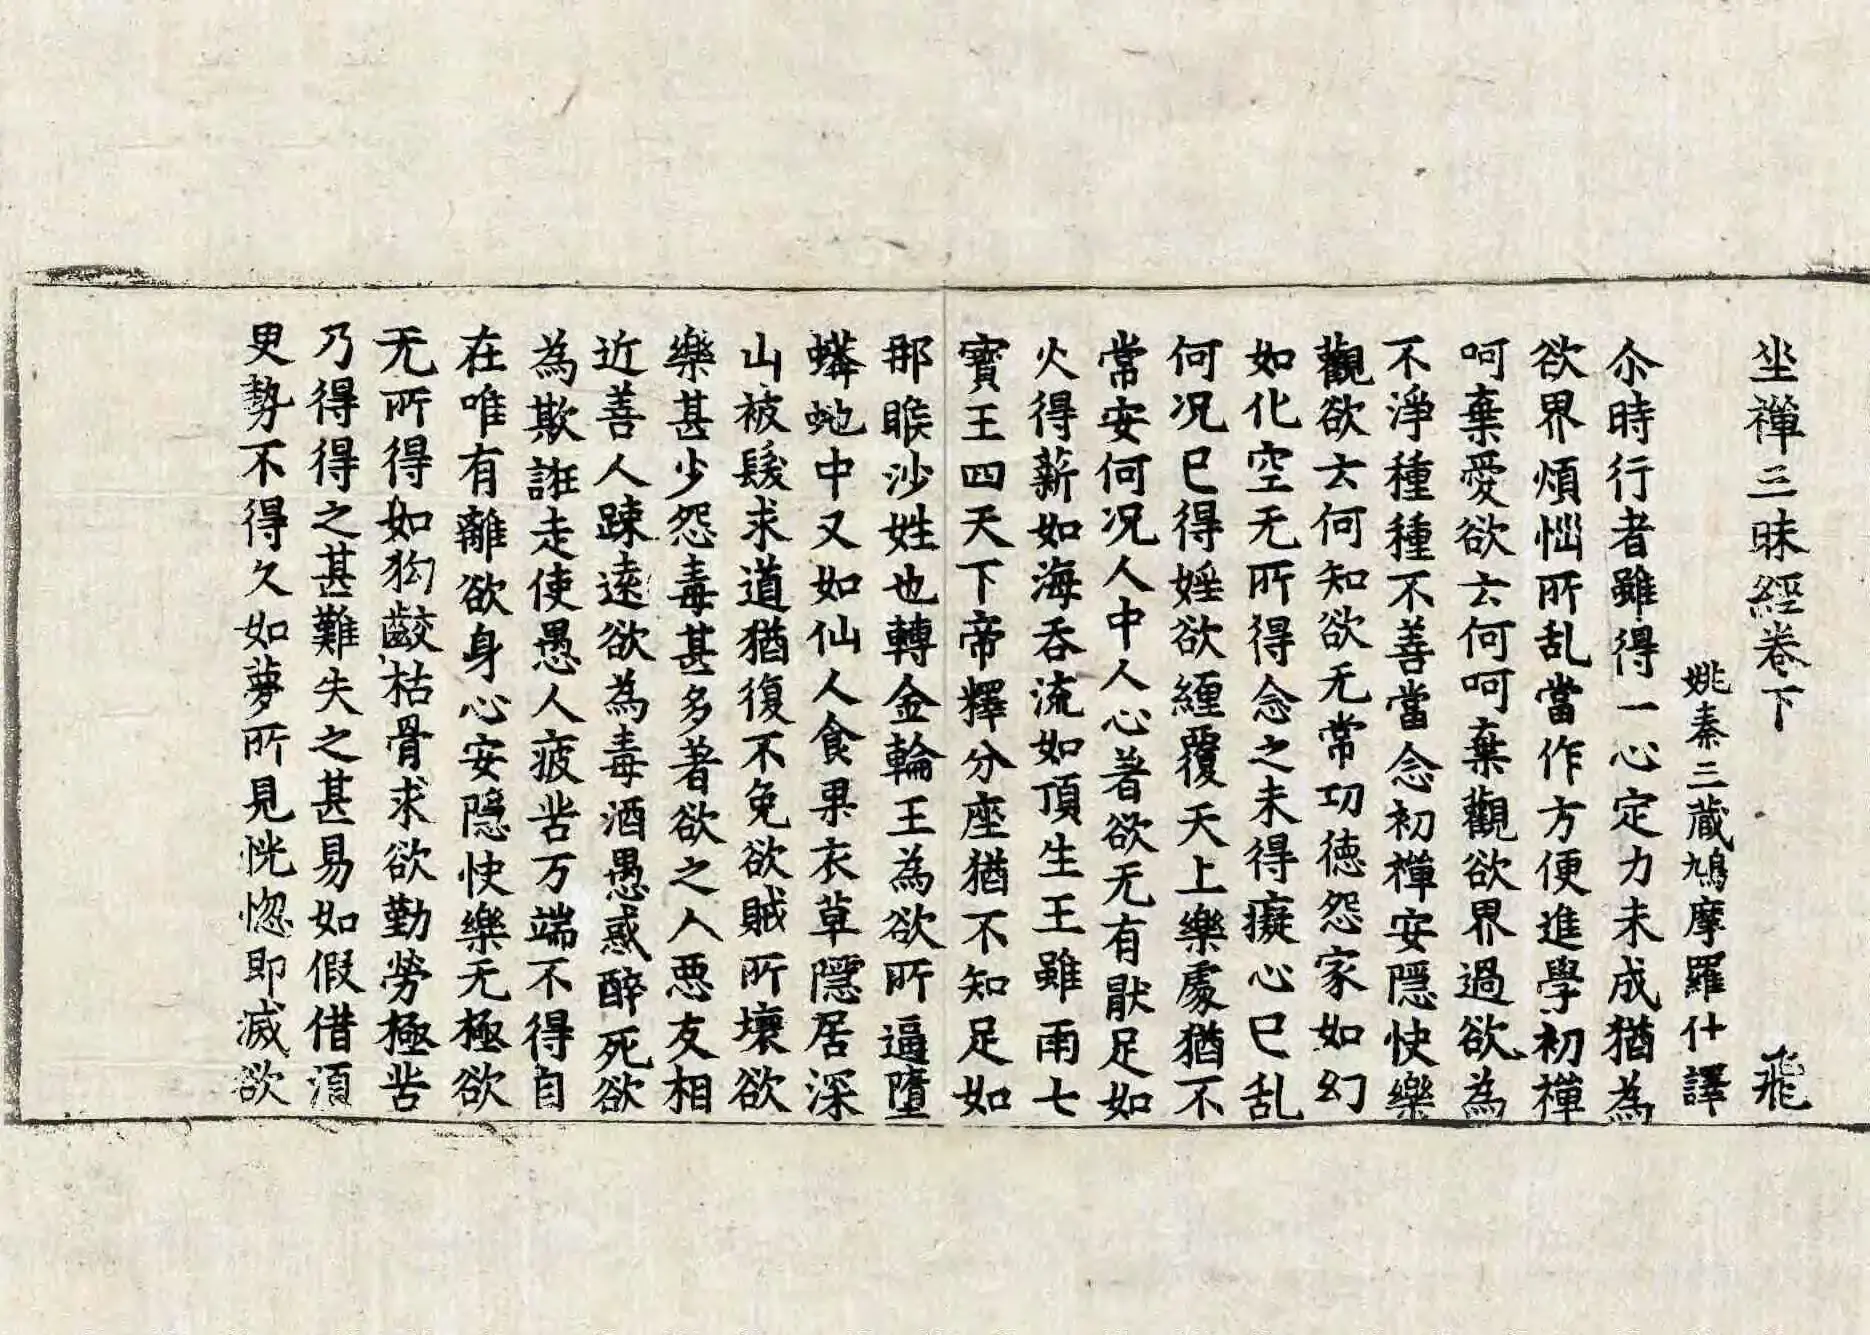 坐禪三昧經卷下 飛
姚秦三藏鳩摩羅什譯
尒時行者雖得一心定力未成猶為
欲界煩惱所乱當作方便進學初禪
呵棄愛欲云何呵棄觀欲界過欲為
不淨種種不善當念初禪安隱快樂
觀欲云何知欲无常功德怨家如幻
如化空无所得念之未得癡心已乱
何况已得婬欲纏覆天上樂處猶不
常安何况人中人心著欲无有猒足如
火得薪如海吞流如頂生王雖雨七
寶王四天下帝釋分座猶不知足如
那睺沙姓也轉金輪王為欲所逼墮
蟒虵中又如仙人食果衣草隱居深
山被髮求道猶復不免欲賊所壞欲
樂甚少怨毒甚多著欲之人惡友相
近善人踈遠欲為毒酒愚惑醉死欲
為欺誑走使愚人疲苦万端不得自
在唯有離欲身心安隱快樂无極欲
无所得如狗齩枯骨求欲勤勞極苦
乃得得之甚難失之甚易如假借須
臾勢不得久如夢所見恍惚即滅欲